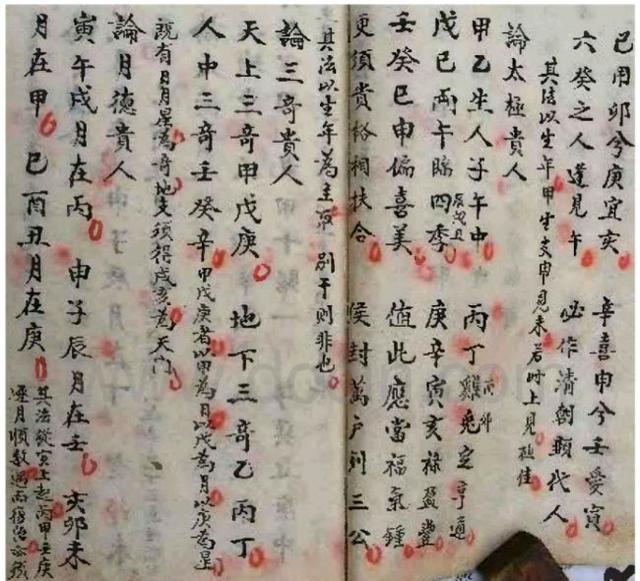 己用卯兮庚宜亥 辛喜申兮壬愛寅
六癸之人逢見午 必作清朝顯代人
其法以生年甲生支申見未若時上見極佳
論太極貴人
甲乙生人子午中 丙丁雞兔定亨通
戊己兩午臨四季 辰戌丑 庚辛寅亥祿盈豐
壬癸巳申偏喜美 值此應當福氣鍾
更須貴格相扶合 侯封萬戶列三公
其法以生年為主取別干則非也
論三奇貴人
天上三奇甲戊庚 地下三奇乙丙丁
人中三奇壬癸辛 甲戊庚者以甲為日以戊為月以庚為星
既有日月星為奇地支須得戌亥為天門
論月德貴人
寅午戌月在丙 申子辰月在壬 亥卯未
月在甲 巳酉丑月在庚 其法從寅上起丙甲壬庚
逐月順數週而復始